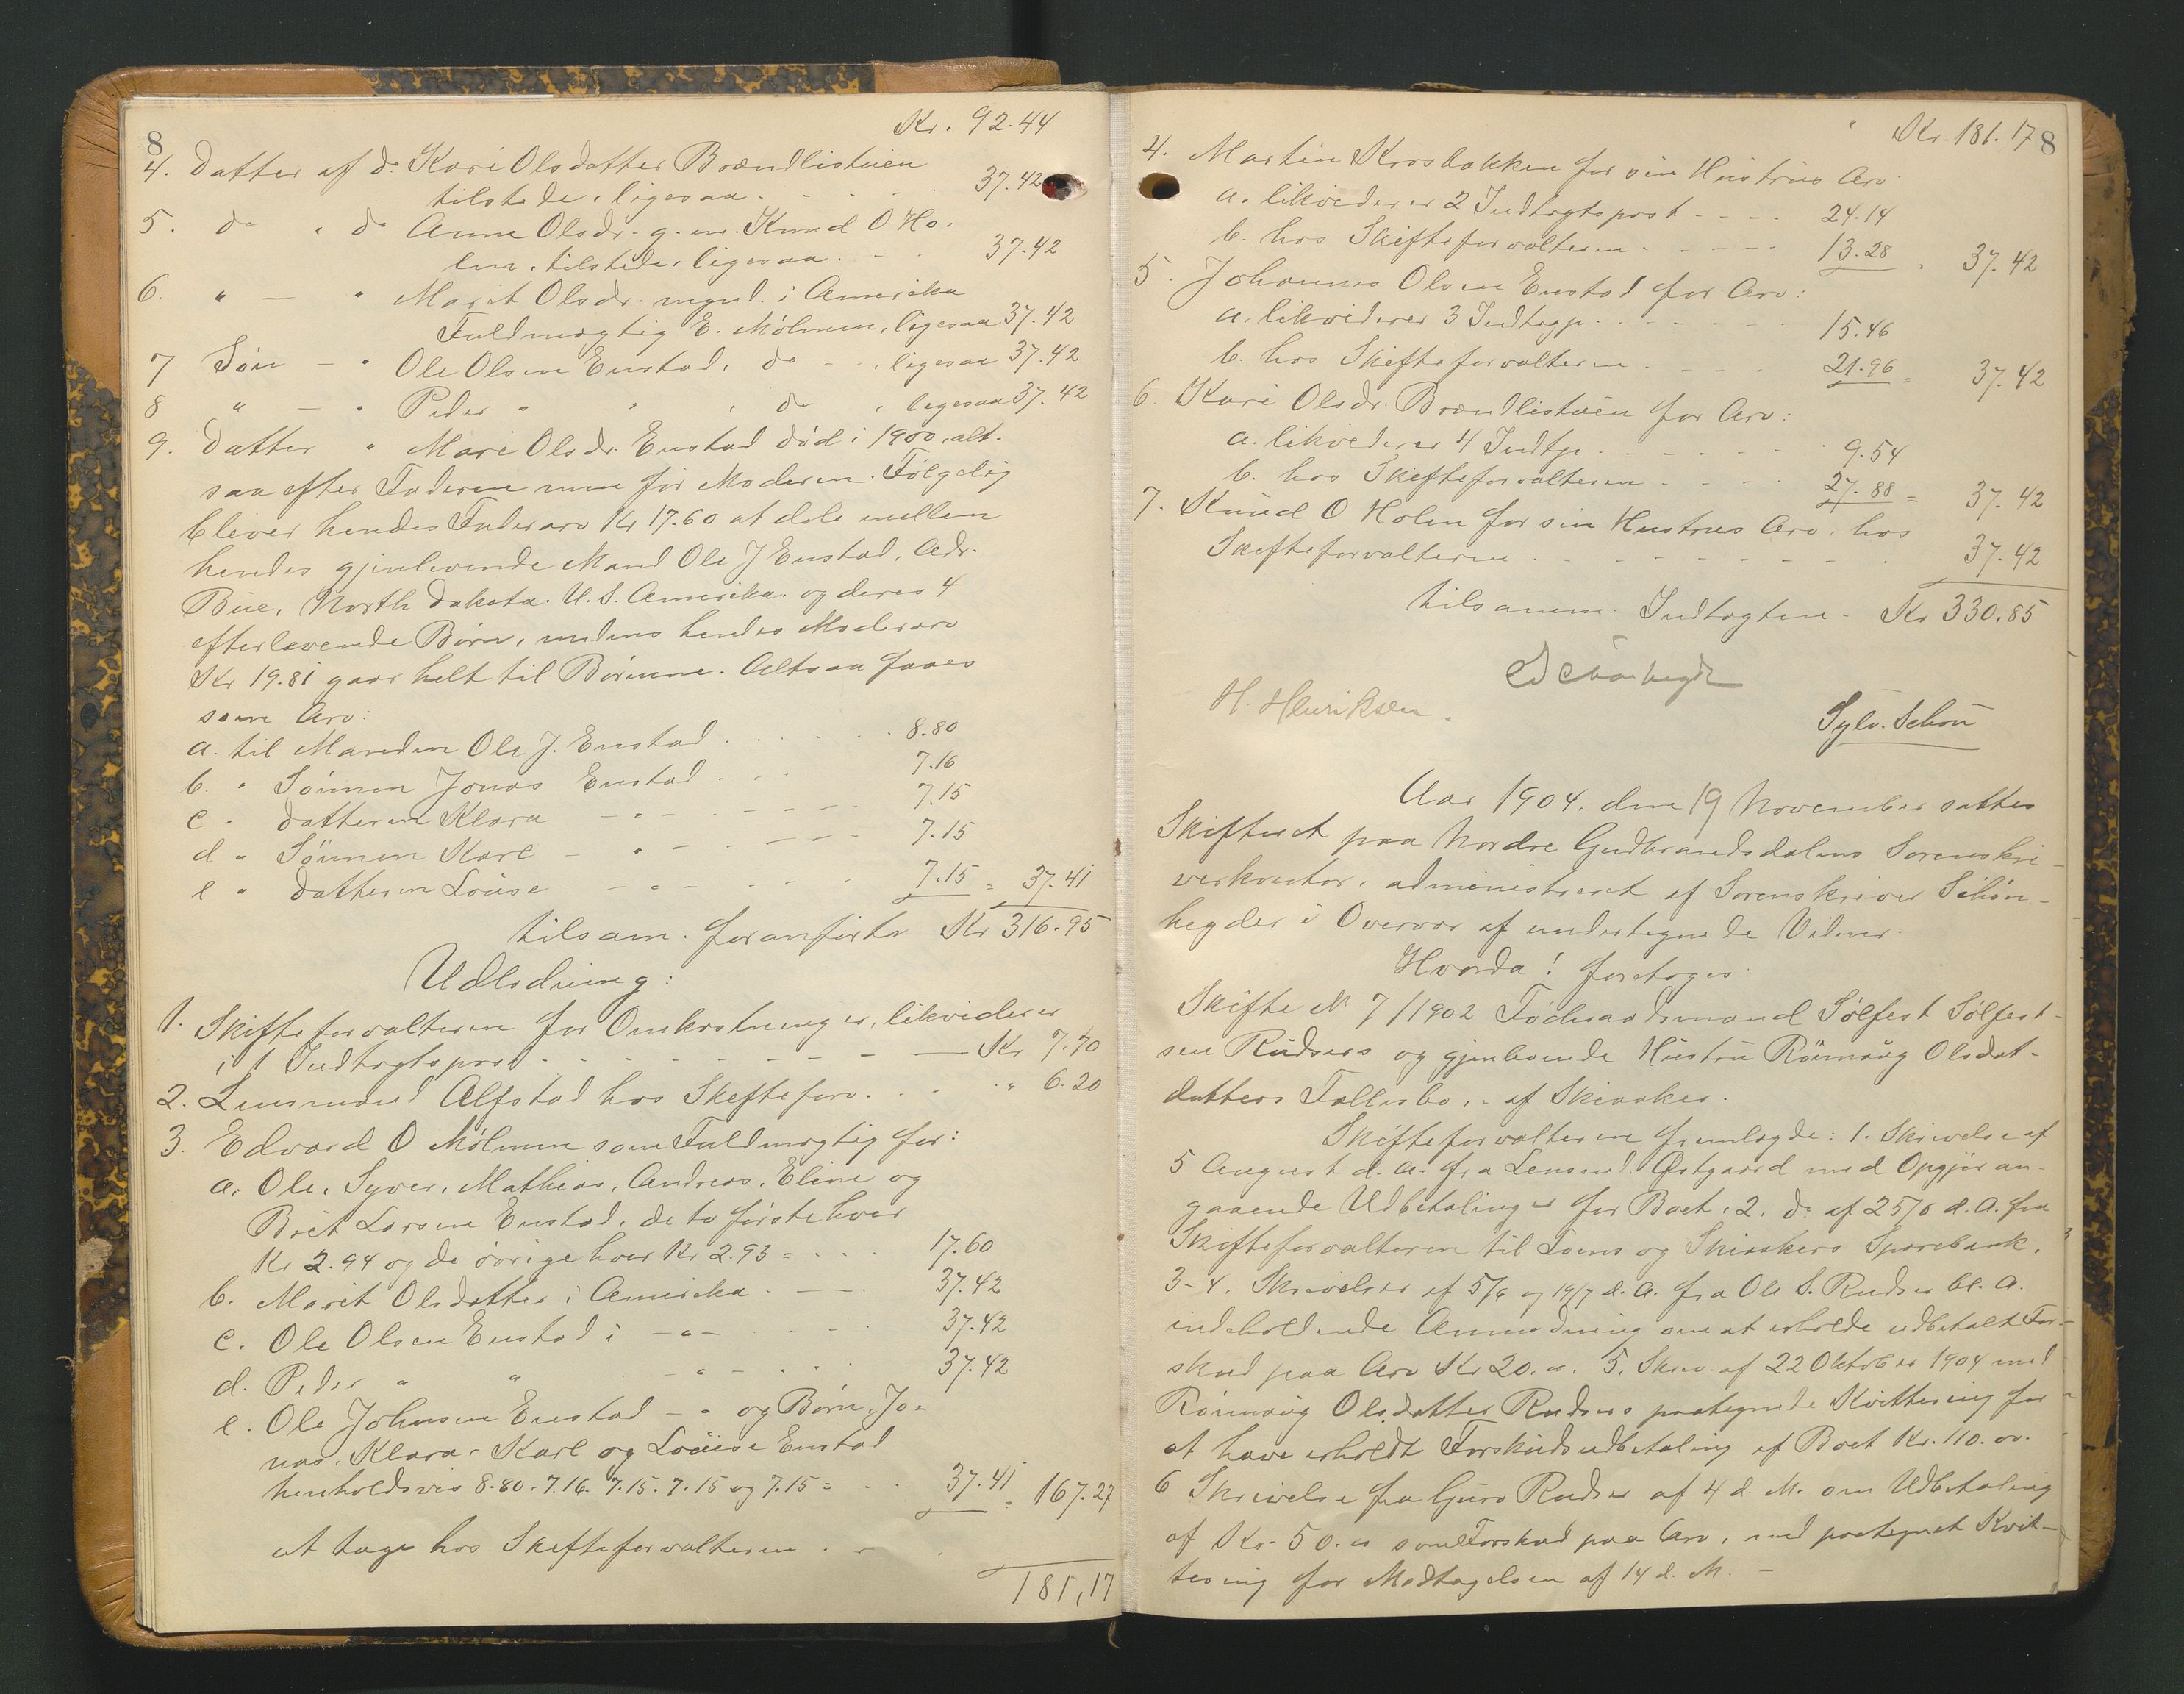 8
Kr. 92.44
4. Datter af do Kari Olsdatter Brændlistuen
tilstede, ligesaa 37.42
5. do " do Anne Olsdr. g. m. Knud O Ho-
lm, tilstede, ligesaa 37.42
6. " — " Marit Olsdr. mynd. i Amerika
Fuldmægtig E. Mölmen, ligesaa 37.42
7 Sön — " Ole Olsen Enstad, do - ligesaa 37.42
8 " — " Peder " " , do , ligesaa 37.42
9. Datter " Mari Olsdr. Enstad död i 1900, alt-
saa efter Faderen men för Moderen. Fölgelig
bliver hendes Faderarv Kr 17.60 at dele mellem
hendes gjenlevende Mand Ole J Enstad, Adr.
Bue, North Dakota. U. S. Amerika og deres 4
efterlevende Börn, medens hendes Moderarv
Kr 19.81 gaar helt til Börnene. Altsaa faaes
som Arv:
a. til Manden Ole J. Enstad 8.80
b. " Sönnen Jonas Enstad 7.16
c " Datteren Klara — " — 7.15
d " Sönnen Karl — " — 7.15
e " Datteren Louise — " — 7.15 = 37.41
tilsam. foranförte Kr 316.95
Udlodning:
1. Skifteforvalteren for Omkostninger, likviderer
i 1 Indtægtspost — Kr 7.70
2. Lensmand Alfstad hos Skifteforv. " 6.20
3. Edvard O Mölmen som Fuldmægtig for:
a. Ole, Syver, Mathias, Andreas, Eline og
Brit Larsen Enstad, de to förste hver
Kr 2.94 og de övrige hver Kr 2.93 = 17.60
b. Marit Olsdatter i Amerika 37.42
c. Ole Olsen Enstad i — " — 37.42
d. Peder " " — " — 37.42
e. Ole Johnsen Enstad — " og Börn, Jo-
nas, Klara, Karl og Louise Enstad
henholdsvis 8.80. 7.16. 7.15. 7.15 og 7.15 = 37.41 = 167.27
at tage hos Skifteforvalteren
181,17
Kr. 181.17
8
4. Martin Krosbakken for sin Hustrus Arv
a. likviderer 2 Indtægtspost 24.14
b. hos Skifteforvalteren 13.28 = 37.42
5. Johannes Olsen Enstad for Arv:
a. likviderer 3 Indtægp. 15.46
b. hos Skifteforvalteren 21.96 = 37.42
6. Kari Olsdr. Brændlistuen for Arv:
a. likviderer 4 Indtp. 9.54
b. hos Skifteforvalteren 27.88 = 37.42
7. Knud O Holm for sin Hustrus Arv, hos
Skifteforvalteren 37.42
tilsamm. Indtægten - Kr 330.85
H. Henriksen.
Sylv. Schou
Aar 1904. den 19 November sattes
Skifteret paa Nordre Gudbrandsdalens Sorenskri-
verkontor, administreret af Sorenskriver Schön-
heyder i Overvær af undertegnede Vidner.
Hvorda! foretoges:
Skifte N 7/1902 Föderaadsmand Sölfest Sölfest-
sen Rudsers og gjenlevende Hustru Rönnaug Olsdat-
datters Fællesbo, - af Skiaaker.
Skifteforvalteren fremlagde: 1. Skrivelse af
5 August d. A. fra Lensmd. Östgaard med Opgjör an-
gaaende Udbetalinger for Boet, 2. do af 25/6 d. A. fra
Skifteforvalteren til Loms og Skiaakers Sparebank,
3-4. Skrivelser af 5/6 og 19/7 d. A. fra Ole S. Rudser bl. a.
indeholdende Anmodning om at erholde udbetalt For-
skud paa Arv Kr 20.00. 5. Skriv. af 22 Oktober 1904 med
Rönnaug Olsdatter Rudsers paategnede Kvittering for
at have erholdt Forskudsudbetaling af Boet Kr. 110.00.
6 Skrivelse fra Guro Rudser af 4 d. M. om Udbetaling
af Kr. 50.00 som Forskud paa Arv, med paategnet Kvit-
tering for Modtagelsen af 14 d. M. -